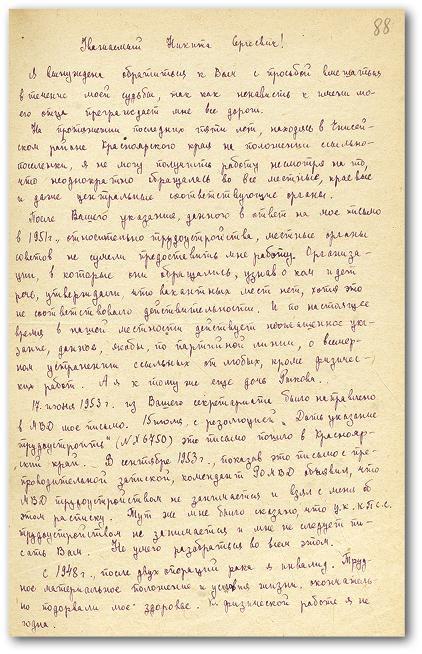 88
Уважаемый Никита Сергеевич!
Я вынуждена обратиться к Вам с просьбой вмешаться
в течение моей судьбы, так как ненависть к имени мо-
его отца преграждает мне все дороги.
На протяжении последних пяти лет, находясь в Енисей-
ском районе Красноярского края на положении ссыльно-
поселенки, я не могу получить работу несмотря на то,
что неоднократно обращалась во все местные, краевые
и даже центральные соответствующие органы.
После Вашего указания, данного в ответ на мое письмо
в 1951г., относительно трудоустройства, местные органы
советов не сумели предоставить мне работу. Организа-
ции, в которые они обращались, узнав о ком идет
речь, утверждали, что вакантных мест нет, хотя это
не соответствовало действительности. И по настоящее
время в нашей местности действует неписанное ука-
зание, данное, якобы, по партийной линии, о всемер-
ном устранении ссыльных от любых, кроме физичес-
ких работ. А я к тому же еще дочь Рыкова...
17 июня 1953г. из Вашего секретариата было направлено
в МВД мое письмо. 15 июля, с резолюцией „Дать указание
трудоустроить" (№Х6750) это письмо пошло в Краснояр-
ский край. В сентябре 1953г., показав это письмо с пре-
проводительной запиской, комендант РОМВД объявил, что
МВД трудоустройством не занимается и взял с меня в
этом расписку. Тут же мне было сказано, что Ц.К. К.П.С.С.
трудоустройством не занимается и мне не следует пи-
сать Вам. Не умею разобраться во всем этом.
С 1948г., после двух операций рака я инвалид. Труд-
ное материальное положение и условия жизни окончатель-
но подорвали мое здоровье. К физической работе я не
годна.